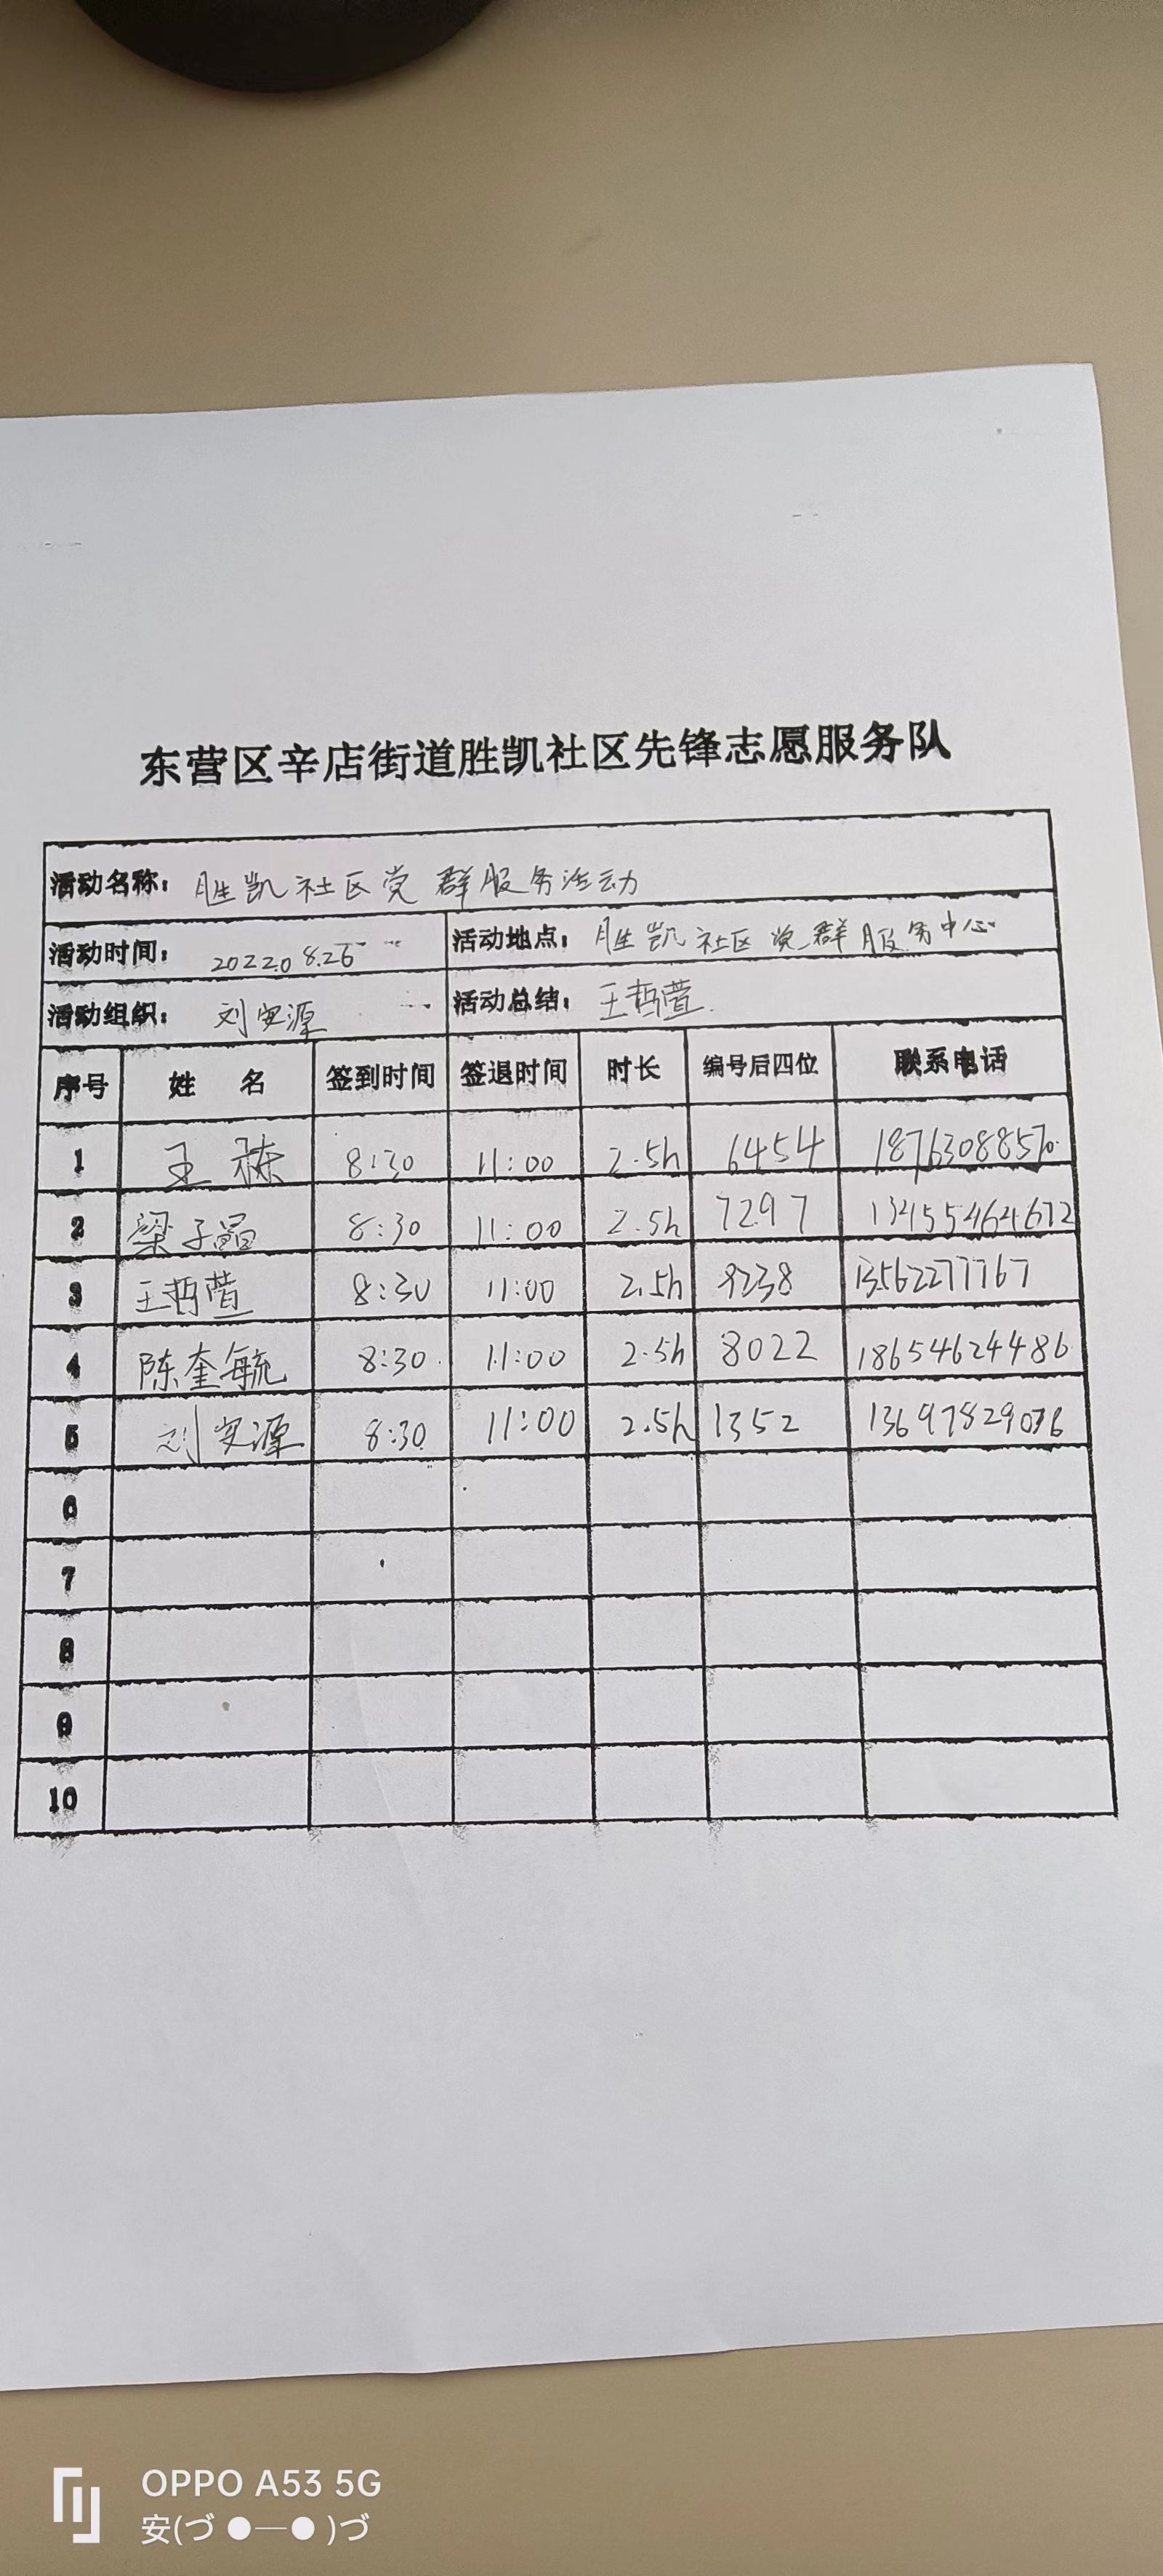 东营区辛店街道胜凯社区先锋志愿服务队
活动名称： 胜凯社区党群服务活动
活动时间： 2022.08.26 活动地点： 胜凯社区党群服务中心
活动组织： 刘安源 活动总结： 王哲萱
序号 姓 名 签到时间 签退时间 时长 编号后四位 联系电话
1 王栋 8:30 11:00 2.5h 6454 18763088570
2 梁子晶 8:30 11:00 2.5h 7297 13455464672
3 王哲萱 8:30 11:00 2.5h 8238 13562277767
4 陈奎毓 8:30 11:00 2.5h 8022 18654624486
5 刘安源 8:30 11:00 2.5h 1352 13697829036
6
7
8
9
10
OPPO A53 5G
安(づ ●─● )づ